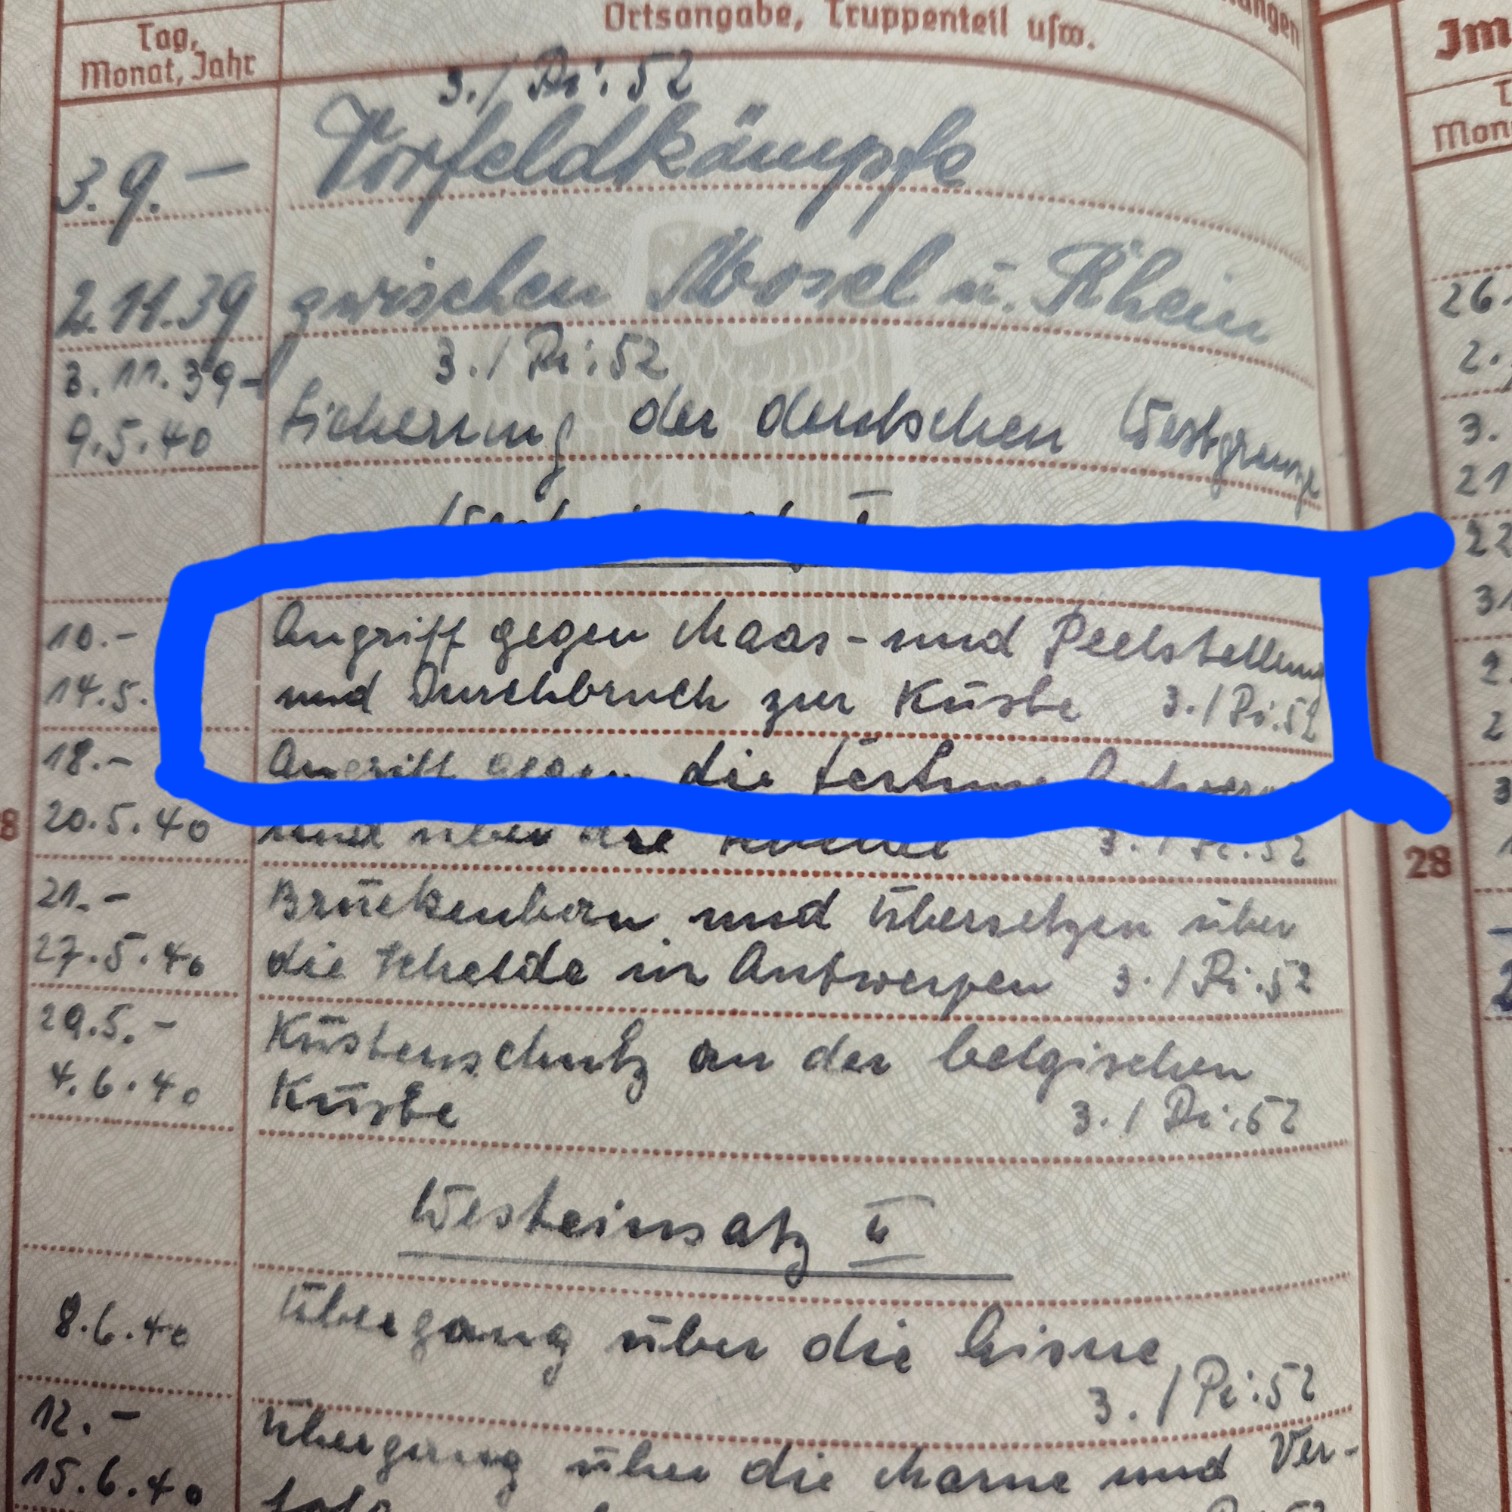 Ortsangabe, Truppenteil usw.
Tag,
Monat, Jahr
3./Pi:52
3.9.- Vorfeldkämpfe
2.11.39 zwischen Mosel u. Rhein
3./Pi:52
3.11.39-
9.5.40 Sicherung der deutschen Westgrenze
I
10.- Angriff gegen Maas- und Peelstellung
14.5. und Durchbruch zur Küste 3./Pi:52
18.- Angriff gegen die
20.5.40 und über die 3./Pi:52
21.- Brückenbau und Übersetzen über
27.5.40 die Schelde in Antwerpen 3./Pi:52
29.5.- Küstenschutz an der belgischen
4.6.40 Küste 3./Pi:52
Westeinsatz II
8.6.40 Übergang über die Aisne
3./Pi:52
12.- Übergang über die Marne und Ver-
15.6.40
8
Im
Mon
26
2.
3.
21
22
28